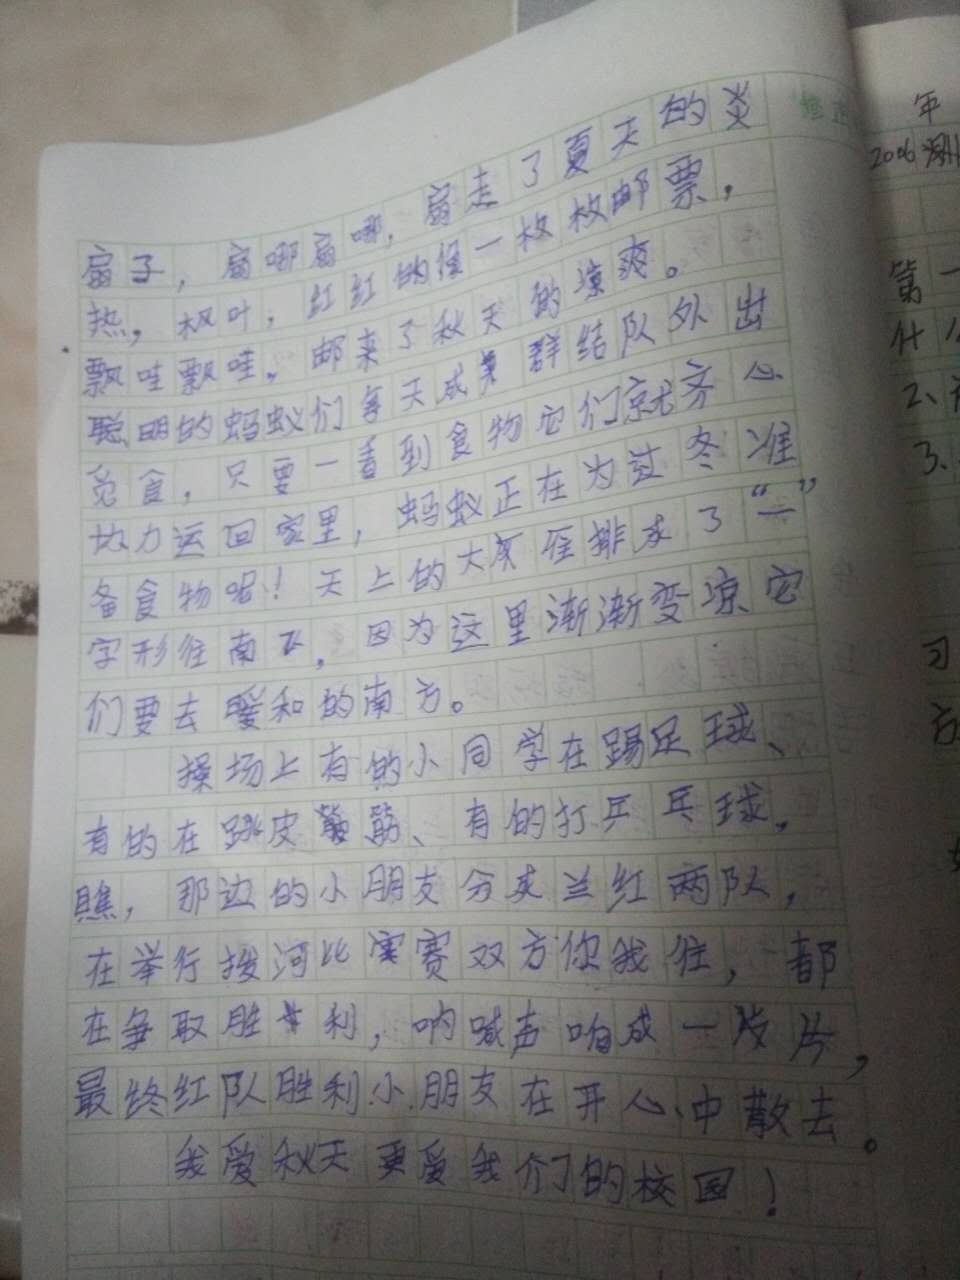 扇子，扇哪扇哪，扇走了夏天的炎
热，枫叶，红红的像一枚枚邮票，
飘哇飘哇。邮来了秋天的凉爽。
聪明的蚂蚁们每天成群结队外出
觅食，只要一看到食物它们就齐心
协力运回家里，蚂蚁正在为过冬准
备食物呢！天上的大雁排成了“一”
字形往南飞，因为这里渐渐变凉它
们要去暖和的南方。
操场上有的小同学在踢足球、
有的在跳皮筋、有的打乒乓球。
瞧，那边的小朋友分成兰红两队，
在举行拔河比赛双方你我往，都
在争取胜利，呐喊声响成一片，
最终红队胜利小朋友在开心中散去。
我爱秋天更爱我们的校园！
修正
年
2006
第一
什么
2、
3、
习
方